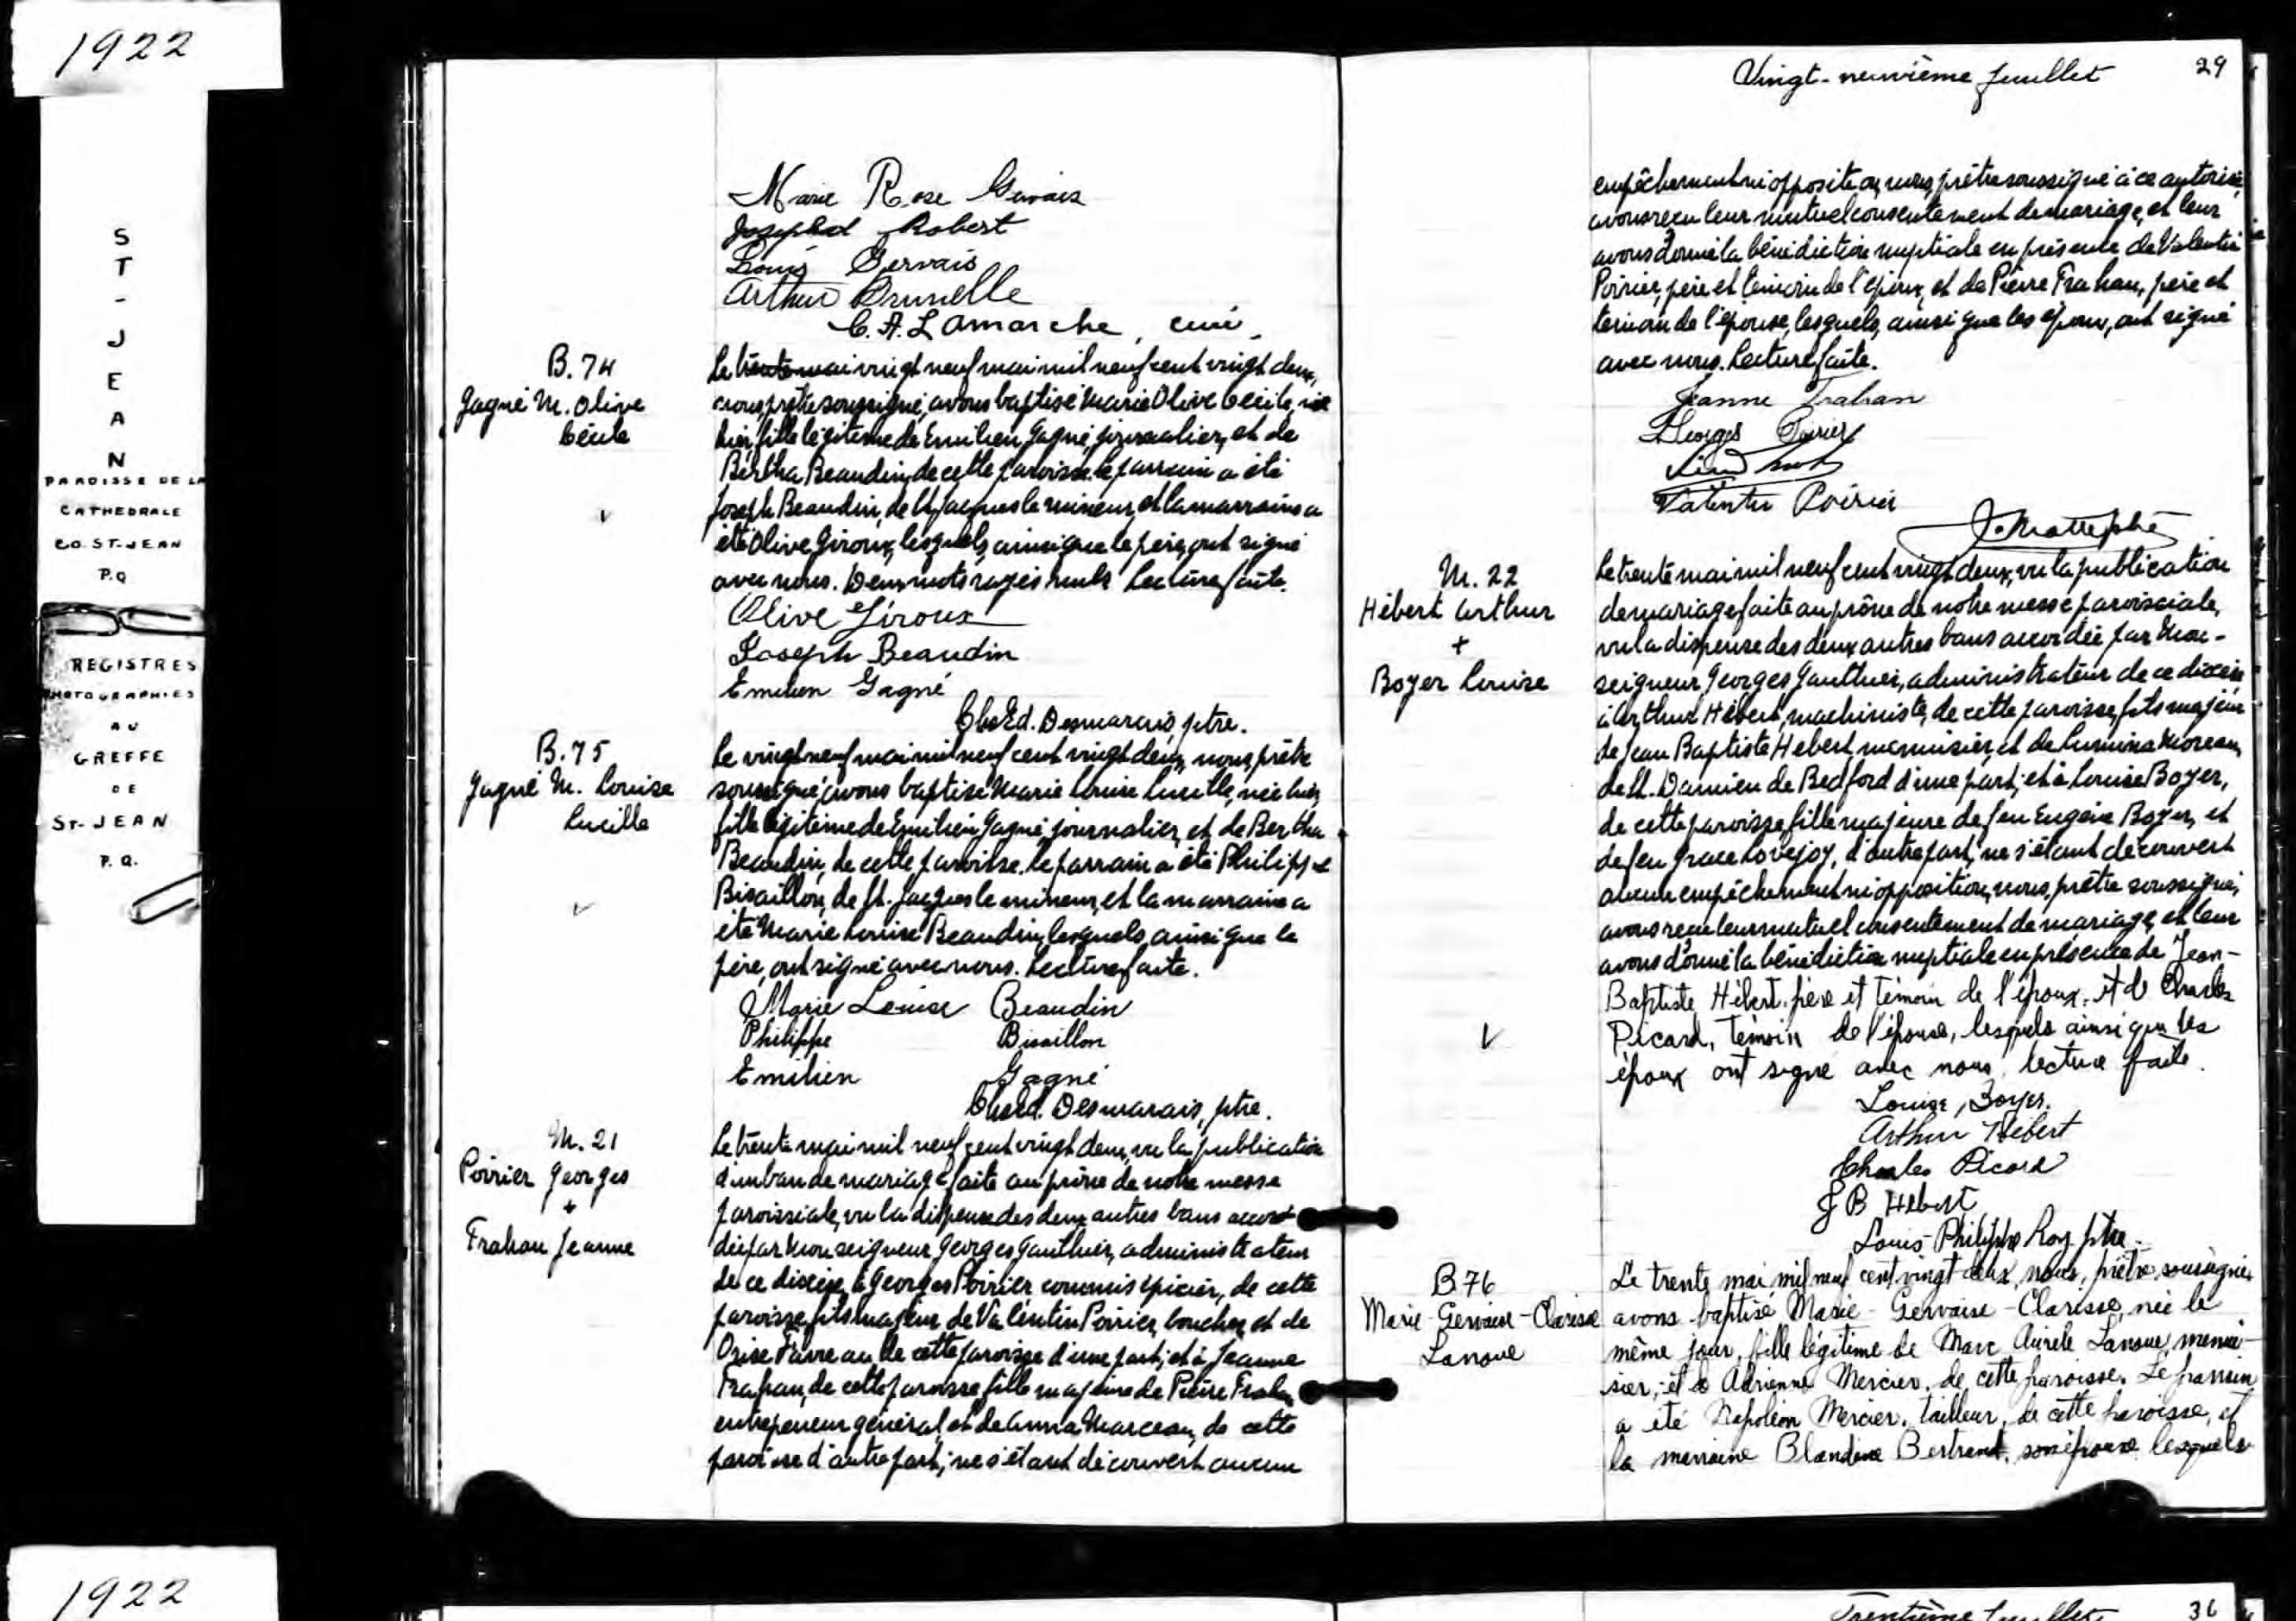 1922
ST-JEAN
PAROISSE DE LA
CATHEDRALE
CO. ST-JEAN
P.Q
REGISTRES
PHOTOGRAPHIES
AU
GREFFE
DE
ST-JEAN
P.Q.
1922
Marie Rose Gervais
Joseph Robert
Louis Gervais
Arthur Brunelle
C. A. Lamarche, curé
B. 74
Gagné M. Olive
Cécile
Le trente mai vingt neuf mai mil neuf cent vingt deux,
nous, prêtre soussigné, avons baptisé Marie Olive Cécile, née
hier, fille légitime de Emilien Gagné, journalier, et de
Bertha Beaudin, de cette paroisse. Le parrain a été
Joseph Beaudin, de St. Jacques le mineur, et la marraine a
été Olive Giroux, lesquels, ainsi que le père, ont signé
avec nous. Deux mots rayés nuls. Lecture faite.
Olive Giroux
Joseph Beaudin
Emilien Gagné
Chs Ed. Desmarais, ptre.
B. 75
Gagné M. Louise
Lucille
Le vingt neuf mai mil neuf cent vingt deux, nous, prêtre
soussigné, avons baptisé Marie Louise Lucille, née hier,
fille légitime de Emilien Gagné, journalier, et de Bertha
Beaudin, de cette paroisse. Le parrain a été Philippe
Bisaillon, de St. Jacques le mineur, et la marraine a
été Marie Louise Beaudin, lesquels, ainsi que le
père, ont signé avec nous. Lecture faite.
Marie Louise Beaudin
Philippe Bisaillon
Emilien Gagné
Chs Ed. Desmarais, ptre.
M. 21
Poirier Georges
+
Trahan Jeanne
Le trente mai mil neuf cent vingt deux, vu la publication
d'un ban de mariage faite au prône de notre messe
paroissiale, vu la dispense des deux autres bans accor
dée par Monseigneur Georges Gauthier, administrateur
de ce diocèse, à Georges Poirier commis épicier, de cette
paroisse, fils majeur de Valentin Poirier, boucher, et de
Ozise Favreau de cette paroisse d'une part; et à Jeanne
Trahan, de cette paroisse fille majeure de Pierre Trahan,
entrepreneur général, et de Anna Marceau, de cette
paroisse d'autre part; ne s'étant découvert aucun
Vingt-neuvième feuillet 29
empêchement ni opposition, nous, prêtre soussigné à ce autorisé,
avons reçu leur mutuel consentement de mariage, et leur
avons donné la bénédiction nuptiale en présence de Valentin
Poirier, père et témoin de l'époux, et de Pierre Trahan, père et
témoin de l'épouse, lesquels, ainsi que les époux, ont signé
avec nous. Lecture faite.
Jeanne Trahan
Georges Poirier
Valentin Poirier
M. 22
Hébert Arthur
+
Boyer Louise
Le trente mai mil neuf cent vingt deux, vu la publication
de mariage faite au prône de notre messe paroissiale,
vu la dispense des deux autres bans accordée par Mon-
seigneur Georges Gauthier, administrateur de ce diocèse
à Arthur Hébert, machiniste, de cette paroisse, fils majeur
de Jean Baptiste Hébert, menuisier, et de Lumina Moreau,
de St. Damien de Bedford d'une part; et à Louise Boyer,
de cette paroisse fille majeure de feu Eugène Boyer, et
de feu Grace Lovejoy, d'autre part, ne s'étant découvert
aucun empêchement ni opposition, nous, prêtre soussigné,
avons reçu leur mutuel consentement de mariage, et leur
avons donné la bénédiction nuptiale en présence de Jean-
Baptiste Hébert, père et témoin de l'époux, et de Charles
Picard, témoin de l'épouse, lesquels ainsi que les
époux ont signé avec nous, lecture faite.
Louise Boyer.
Arthur Hébert
Charles Picard
J B Hébert
Louis-Philippe Roy ptre.
B 76
Marie-Gervaise-Clarisse
Lanoue
Le trente mai mil neuf cent vingt deux, nous, prêtre, soussigné,
avons baptisé Marie-Gervaise-Clarisse, née le
même jour, fille légitime de Marc Aurèle Lanoue, menui-
sier, et de Adrienne Mercier, de cette paroisse. Le parrain
a été Napoléon Mercier, tailleur, de cette paroisse, et
la marraine Blandine Bertrand, son épouse lesquels
Trentième feuillet 36